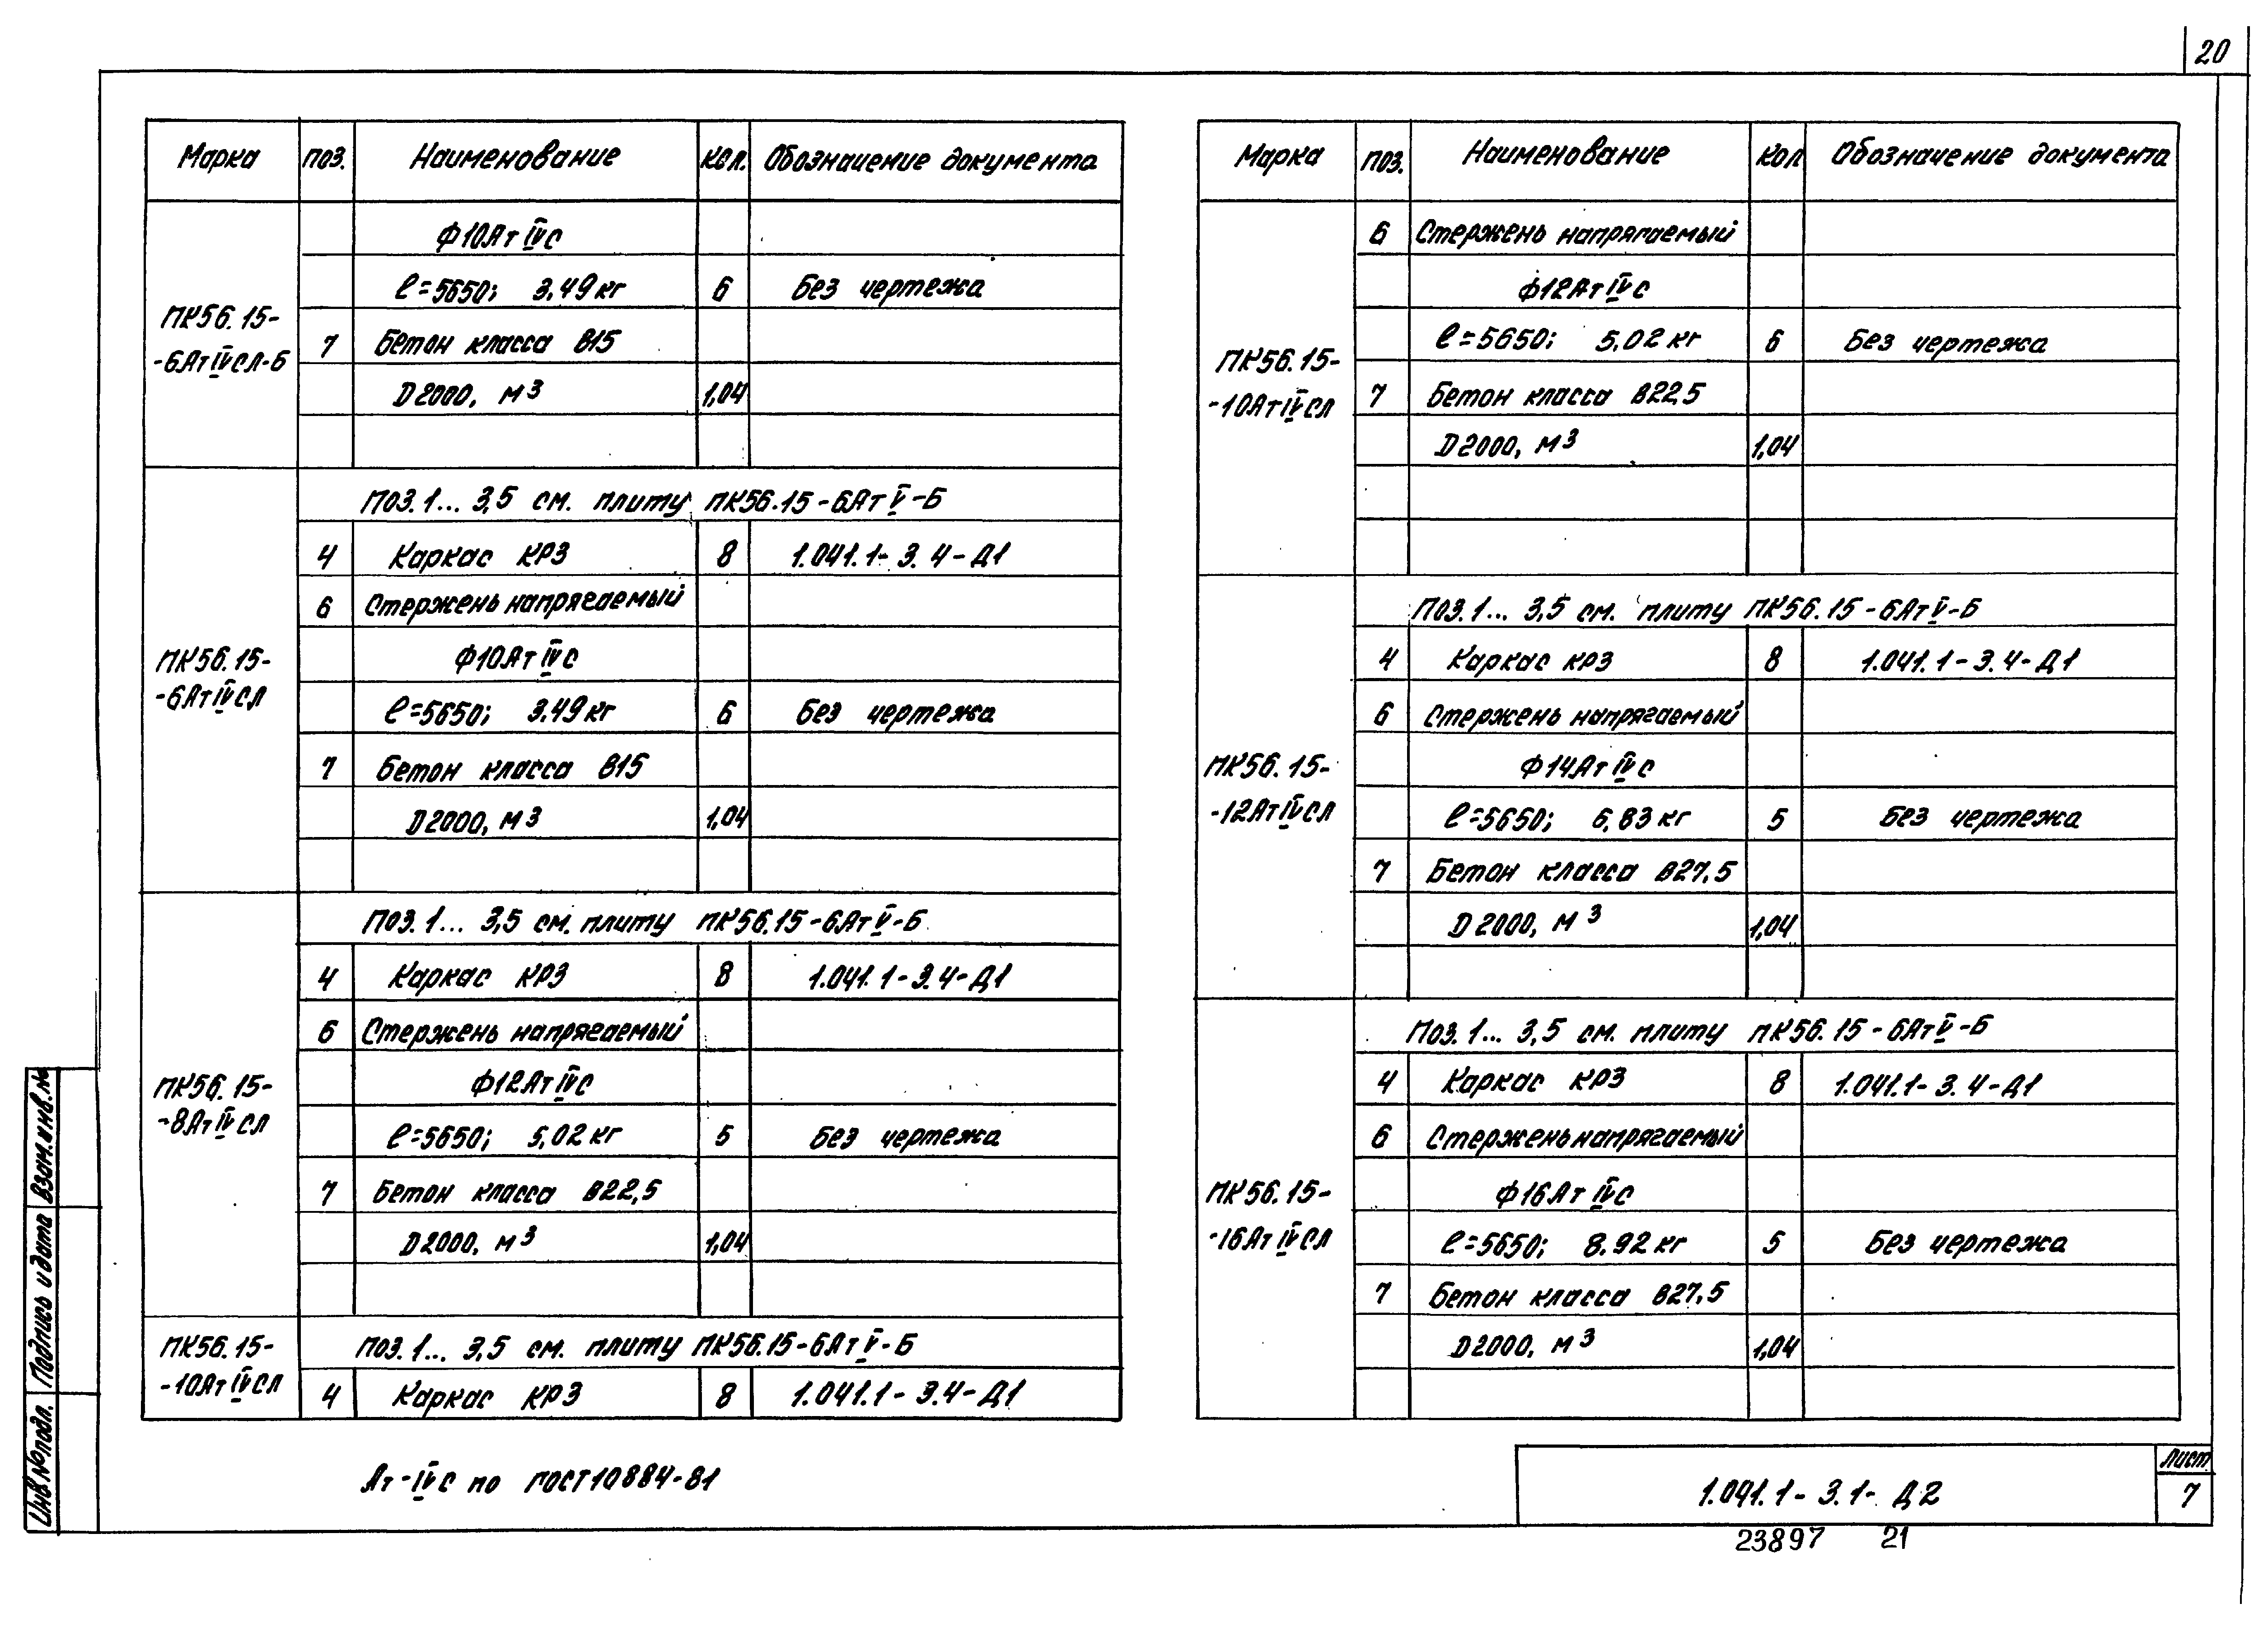 20
Марка поз. Наименование кол. Обозначение документа
ПК56.15-
-6АтIVСЛ-Б
Ф10АтIVС
ℓ=5650; 3,49кг 6 Без чертежа
7 Бетон класса В15
D2000, м3 1,04
ПК56.15-
-6АтIVСЛ
Поз.1... 3,5 см. плиту ПК56.15-6АтV-Б
4 Каркас КР3 8 1.041.1-3.4-Д1
6 Стержень напрягаемый
Ф10АтIVС
ℓ=5650; 3.49кг 6 Без чертежа
7 Бетон класса В15
D2000, м3 1,04
ПК56.15-
-8АтIVСЛ
Поз.1... 3,5 см. плиту ПК56.15-6АтV-Б
4 Каркас КР3 8 1.041.1-3.4-Д1
6 Стержень напрягаемый
Ф12АтIVС
ℓ=5650; 5,02кг 5 Без чертежа
7 Бетон класса В22,5
D2000, м3 1,04
ПК56.15-
-10АтIVСЛ
Поз.1... 3,5 см. плиту ПК56.15-6АтV-Б
4 Каркас КР3 8 1.041.1-3.4-Д1
Марка поз. Наименование кол Обозначение документа
ПК56.15-
-10АтIVСЛ
6 Стержень напрягаемый
Ф12АтIVС
ℓ=5650; 5,02кг 6 Без чертежа
7 Бетон класса В22,5
D2000, м3 1,04
ПК56.15-
-12АтIVСЛ
Поз.1... 3,5 см. плиту ПК56.15-6АтV-Б
4 Каркас КР3 8 1.041.1-3.4-Д1
6 Стержень напрягаемый
Ф14АтIVС
ℓ=5650; 6,83кг 5 Без чертежа
7 Бетон класса В27,5
D2000, м3 1,04
ПК56.15-
-16АтIVСЛ
Поз.1... 3,5 см. плиту ПК56.15-6АтV-Б
4 Каркас КР3 8 1.041.1-3.4-Д1
6 Стержень напрягаемый
Ф16АтIVС
ℓ=5650; 8.92кг 5 Без чертежа
7 Бетон класса В27,5
D2000, м3 1,04
Ат-IVС по ГОСТ10884-81
1.041.1-3.1-Д2
Лист
7
23897 21
Инв№подл. Подпись и дата Взам.инв.№